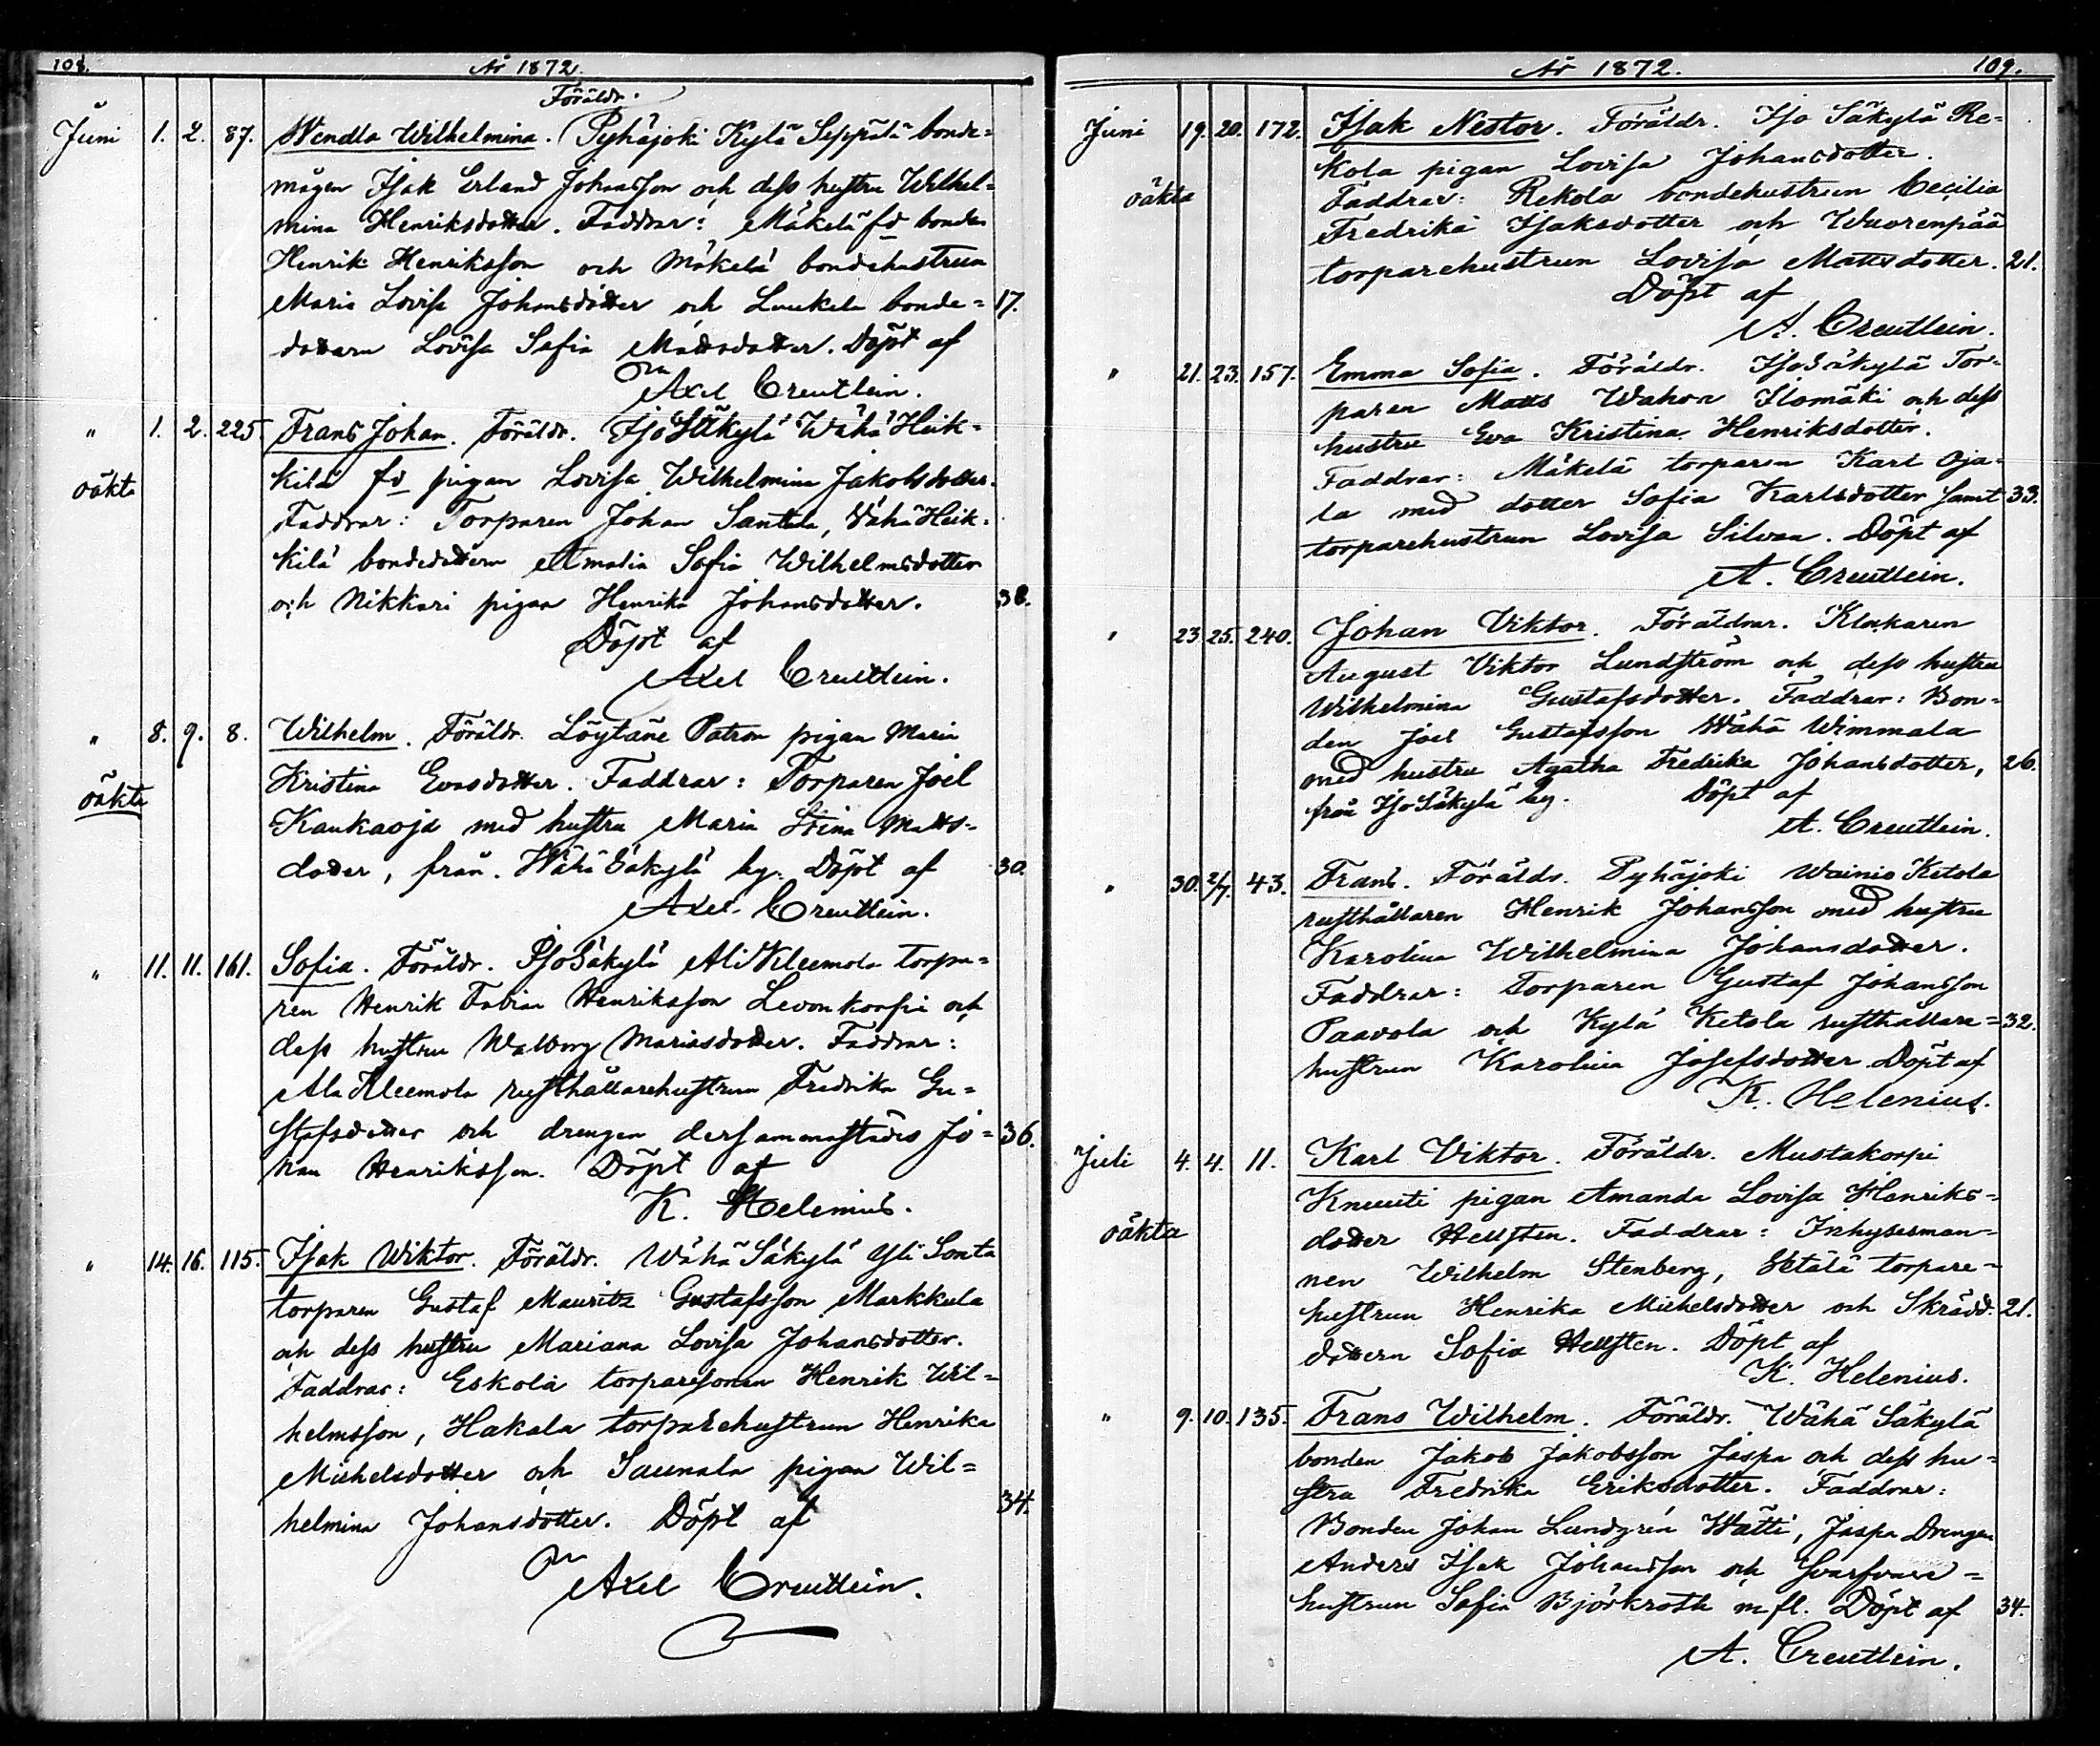 108.
År 1872.
Föräldr.
Juni 1. 2. 87. Wendla Wilhelmina. Pyhäjoki Kylä Seppälä bonde=
mågen Isak Erland Johansson och dess hustru Wilhel=
mina Henriksdotter. Faddrar: Mäkelä fd bonden
Henrik Henriksson och Mäkelä bondehustrun
Maria Lovisa Johansdotter och Luukela bonde= 17.
dottern Lovisa Sofia Mattsdotter. Döpt af
Axel Creutlein.
" 1. 2. 225. Frans Johan. Föräldr. IsoSäkylä Wähä Heik=
oäkta
kilä fd pigan Lovisa Wilhelmina Jakobsdotter.
Faddrar: Torparen Johan Santala, Wähä Heik=
kilä bondedottern Amalia Sofia Wilhelmsdotter
och Nikkari pigan Henrika Johansdotter. 38.
Döpt af
Axel Creutlein.
" 8. 9. 8. Wilhelm. Föräldr. Löytäne Patron pigan Maria
oäkta
Kristina Evasdotter. Faddrar: Torparen Joel
Kaukaoja med hustru Maria Stina Matts=
dotter, från Wähä Säkylä by. Döpt af 30.
Axel Creutlein.
" 11. 11. 161. Sofia. Föräldr. IsoSäkylä Ali Kleemola torpa=
ren Henrik Fabian Henriksson Levonkorpi och
dess hustru Walborg Mariasdotter. Faddrar:
Ala Kleemola rusthållarehustrun Fredrika Gu=
stafsdotter och drengen dersammastädes Jo= 36.
han Henriksson. Döpt af
K. Helenius.
" 14. 16. 115. Isak Wiktor. Föräldr. Wähä Säkylä Yli Sonta
torparen Gustaf Mauritz Gustafsson Markkula
och dess hustru Mariana Lovisa Johansdotter.
Faddrar: Eskola torparesonen Henrik Wil=
helmsson, Hakala torparehustrun Henrika
Michelsdotter och Saunala pigan Wil=
helmina Johansdotter. Döpt af 34.
Axel Creutlein.
År 1872. 109.
Juni 19. 20. 172. Isak Nestor. Föräldr. Iso Säkylä Re=
kola pigan Lovisa Johansdotter.
oäkta
Faddrar: Rekola bondehustrun Cecilia
Fredrika Isaksdotter och Wuorenpää
torparehustrun Lovisa Mattsdotter. 21.
Döpt af
A. Creutlein.
" 21. 23. 157. Emma Sofia. Föräldr. IsoSäkylä Tor=
paren Matts Wahon Ilomäki och dess
hustru Eva Kristina Henriksdotter.
Faddrar: Mäkelä torparen Karl Oja=
la med dotter Sofia Karlsdotter samt 33.
torparehustrun Lovisa Silvan. Döpt af
A. Creutlein.
" 23. 25. 240. Johan Viktor. Föräldrar. Klockaren
August Viktor Lundström och dess hustru
Wilhelmina Gustafsdotter. Faddrar: Bon=
den Joel Gustafsson Wähä Wimmala
med hustru Agatha Fredrika Johansdotter, 26.
från IsoSäkylä by. Döpt af
A. Creutlein.
" 30. 2/7. 43. Frans. Föräldr. Pyhäjoki Wainio Ketola
rusthållaren Henrik Johansson med hustru
Karolina Wilhelmina Johansdotter.
Faddrar: Torparen Gustaf Johansson
Paavola och Kylä Ketola rusthållare= 32.
hustrun Karolina Josefsdotter. Döpt af
K. Helenius.
Juli 4. 4. 11. Karl Viktor. Föräldr. Mustakorpi
Knuuti pigan Amanda Lovisa Henriks=
oäkta
dotter Hellsten. Faddrar: Inhysesman=
nen Wilhelm Stenberg, torpare=
hustrun Henrika Michelsdotter och Skrädd. 21.
dottern Sofia Hellsten. Döpt af
K. Helenius.
" 9. 10. 135. Frans Wilhelm. Föräldr. Wähä Säkylä
bonden Jakob Jakobsson Jaspa och dess hu=
stru Fredrika Eriksdotter. Faddrar:
Bonden Johan Lundgrén Wätti, Jaspa Drengen
Anders Isak Johansson och Svarfvare=
hustrun Sofia Björkroth m fl. Döpt af 34.
A. Creutlein.